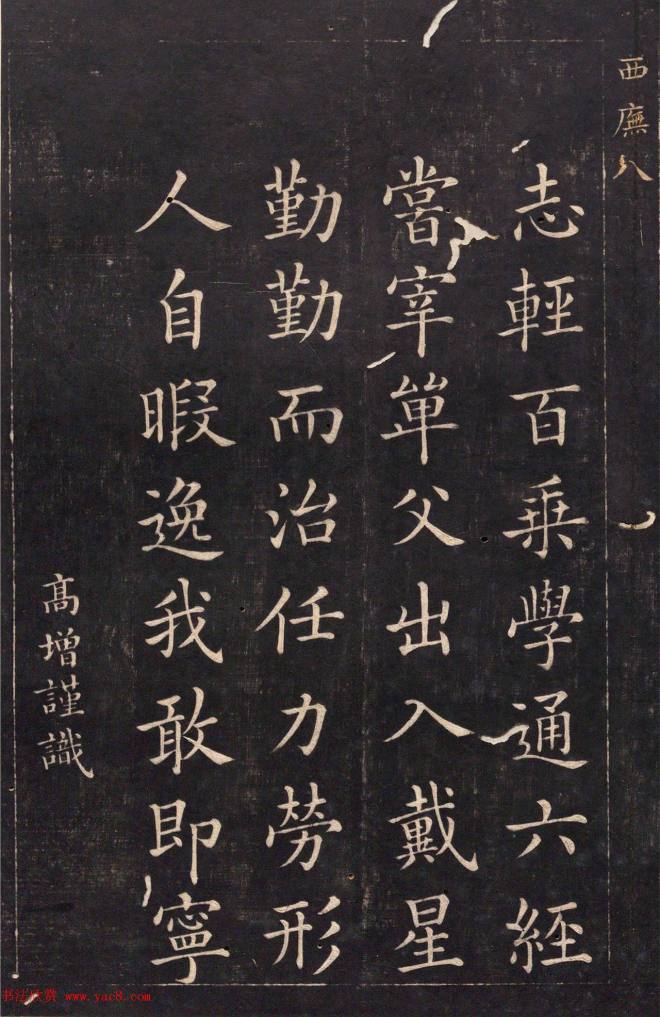 西廡八
志輕百乗學通六經
嘗宰單父出入戴星
勤勤而治任力勞形
人自暇逸我敢即寧
高增謹識
书法欣赏 www.yac8.com